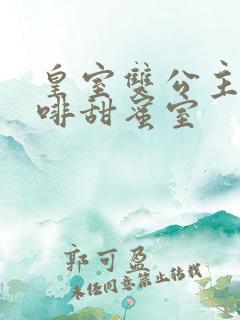 皇室雙公主
啡甜蜜室
郭可盈
未經同意禁止轉載